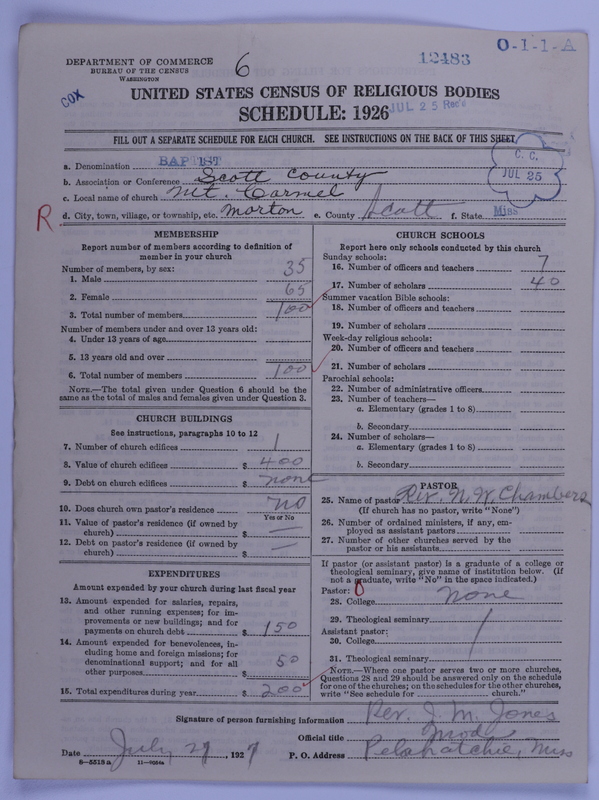 DEPARTMENT OF COMMERCE
BUREAU OF THE CENSUS
WASHINGTON
6
12483
O-I-1-A
COX
UNITED STATES CENSUS OF RELIGIOUS BODIES
SCHEDULE: 1926
JUL 25 Rec'd
FILL OUT A SEPARATE SCHEDULE FOR EACH CHURCH. SEE INSTRUCTIONS ON THE BACK OF THIS SHEET
C. C.
JUL 25
a. Denomination BAPTIST
b. Association or Conference Scott County
c. Local name of church Mt. Carmel
R. d. City, town, village, or township, etc. Morton e. County Scott f. State Miss
MEMBERSHIP
Report number of members according to definition of
member in your church
Number of members, by sex:
1. Male 35
2. Female 65
3. Total number of members 100
Number of members under and over 13 years old:
4. Under 13 years of age
5. 13 years old and over
6. Total number of members 100
NOTE.—The total given under Question 6 should be the
same as the total of males and females given under Question 3.
CHURCH BUILDINGS
See instructions, paragraphs 10 to 12
7. Number of church edifices 1
8. Value of church edifices $ 400
9. Debt on church edifices $ none
10. Does church own pastor's residence no
Yes or No
11. Value of pastor's residence (if owned by
church) $ —
12. Debt on pastor's residence (if owned by
church) $ —
EXPENDITURES
Amount expended by your church during last fiscal year
13. Amount expended for salaries, repairs,
and other running expenses; for im-
provements or new buildings; and for
payments on church debt $ 150
14. Amount expended for benevolences, in-
cluding home and foreign missions; for
denominational support; and for all
other purposes $ 50
15. Total expenditures during year $ 200
CHURCH SCHOOLS
Report here only schools conducted by this church
Sunday schools:
16. Number of officers and teachers 7
17. Number of scholars 40
Summer vacation Bible schools:
18. Number of officers and teachers
19. Number of scholars
Week-day religious schools:
20. Number of officers and teachers
21. Number of scholars
Parochial schools:
22. Number of administrative officers
23. Number of teachers—
a. Elementary (grades 1 to 8)
b. Secondary
24. Number of scholars—
a. Elementary (grades 1 to 8)
b. Secondary
PASTOR
25. Name of pastor Rev. N. W. Chambers
(If church has no pastor, write "None")
26. Number of ordained ministers, if any, em-
ployed as assistant pastors
27. Number of other churches served by the
pastor or his assistants
If pastor (or assistant pastor) is a graduate of a college or
theological seminary, give name of institution below. (If
not a graduate, write "No" in the space indicated.)
Pastor: 0
28. College none
29. Theological seminary
Assistant pastor:
30. College
31. Theological seminary
NOTE.—Where one pastor serves two or more churches,
Questions 28 and 29 should be answered only on the schedule
for one of the churches; on the schedules for the other churches,
write "See schedule for church."
Signature of person furnishing information Rev. J. M. Jones
Official title Mod
Date July 29, 1927 P. O. Address Pelahatchie, Miss
8—5518a